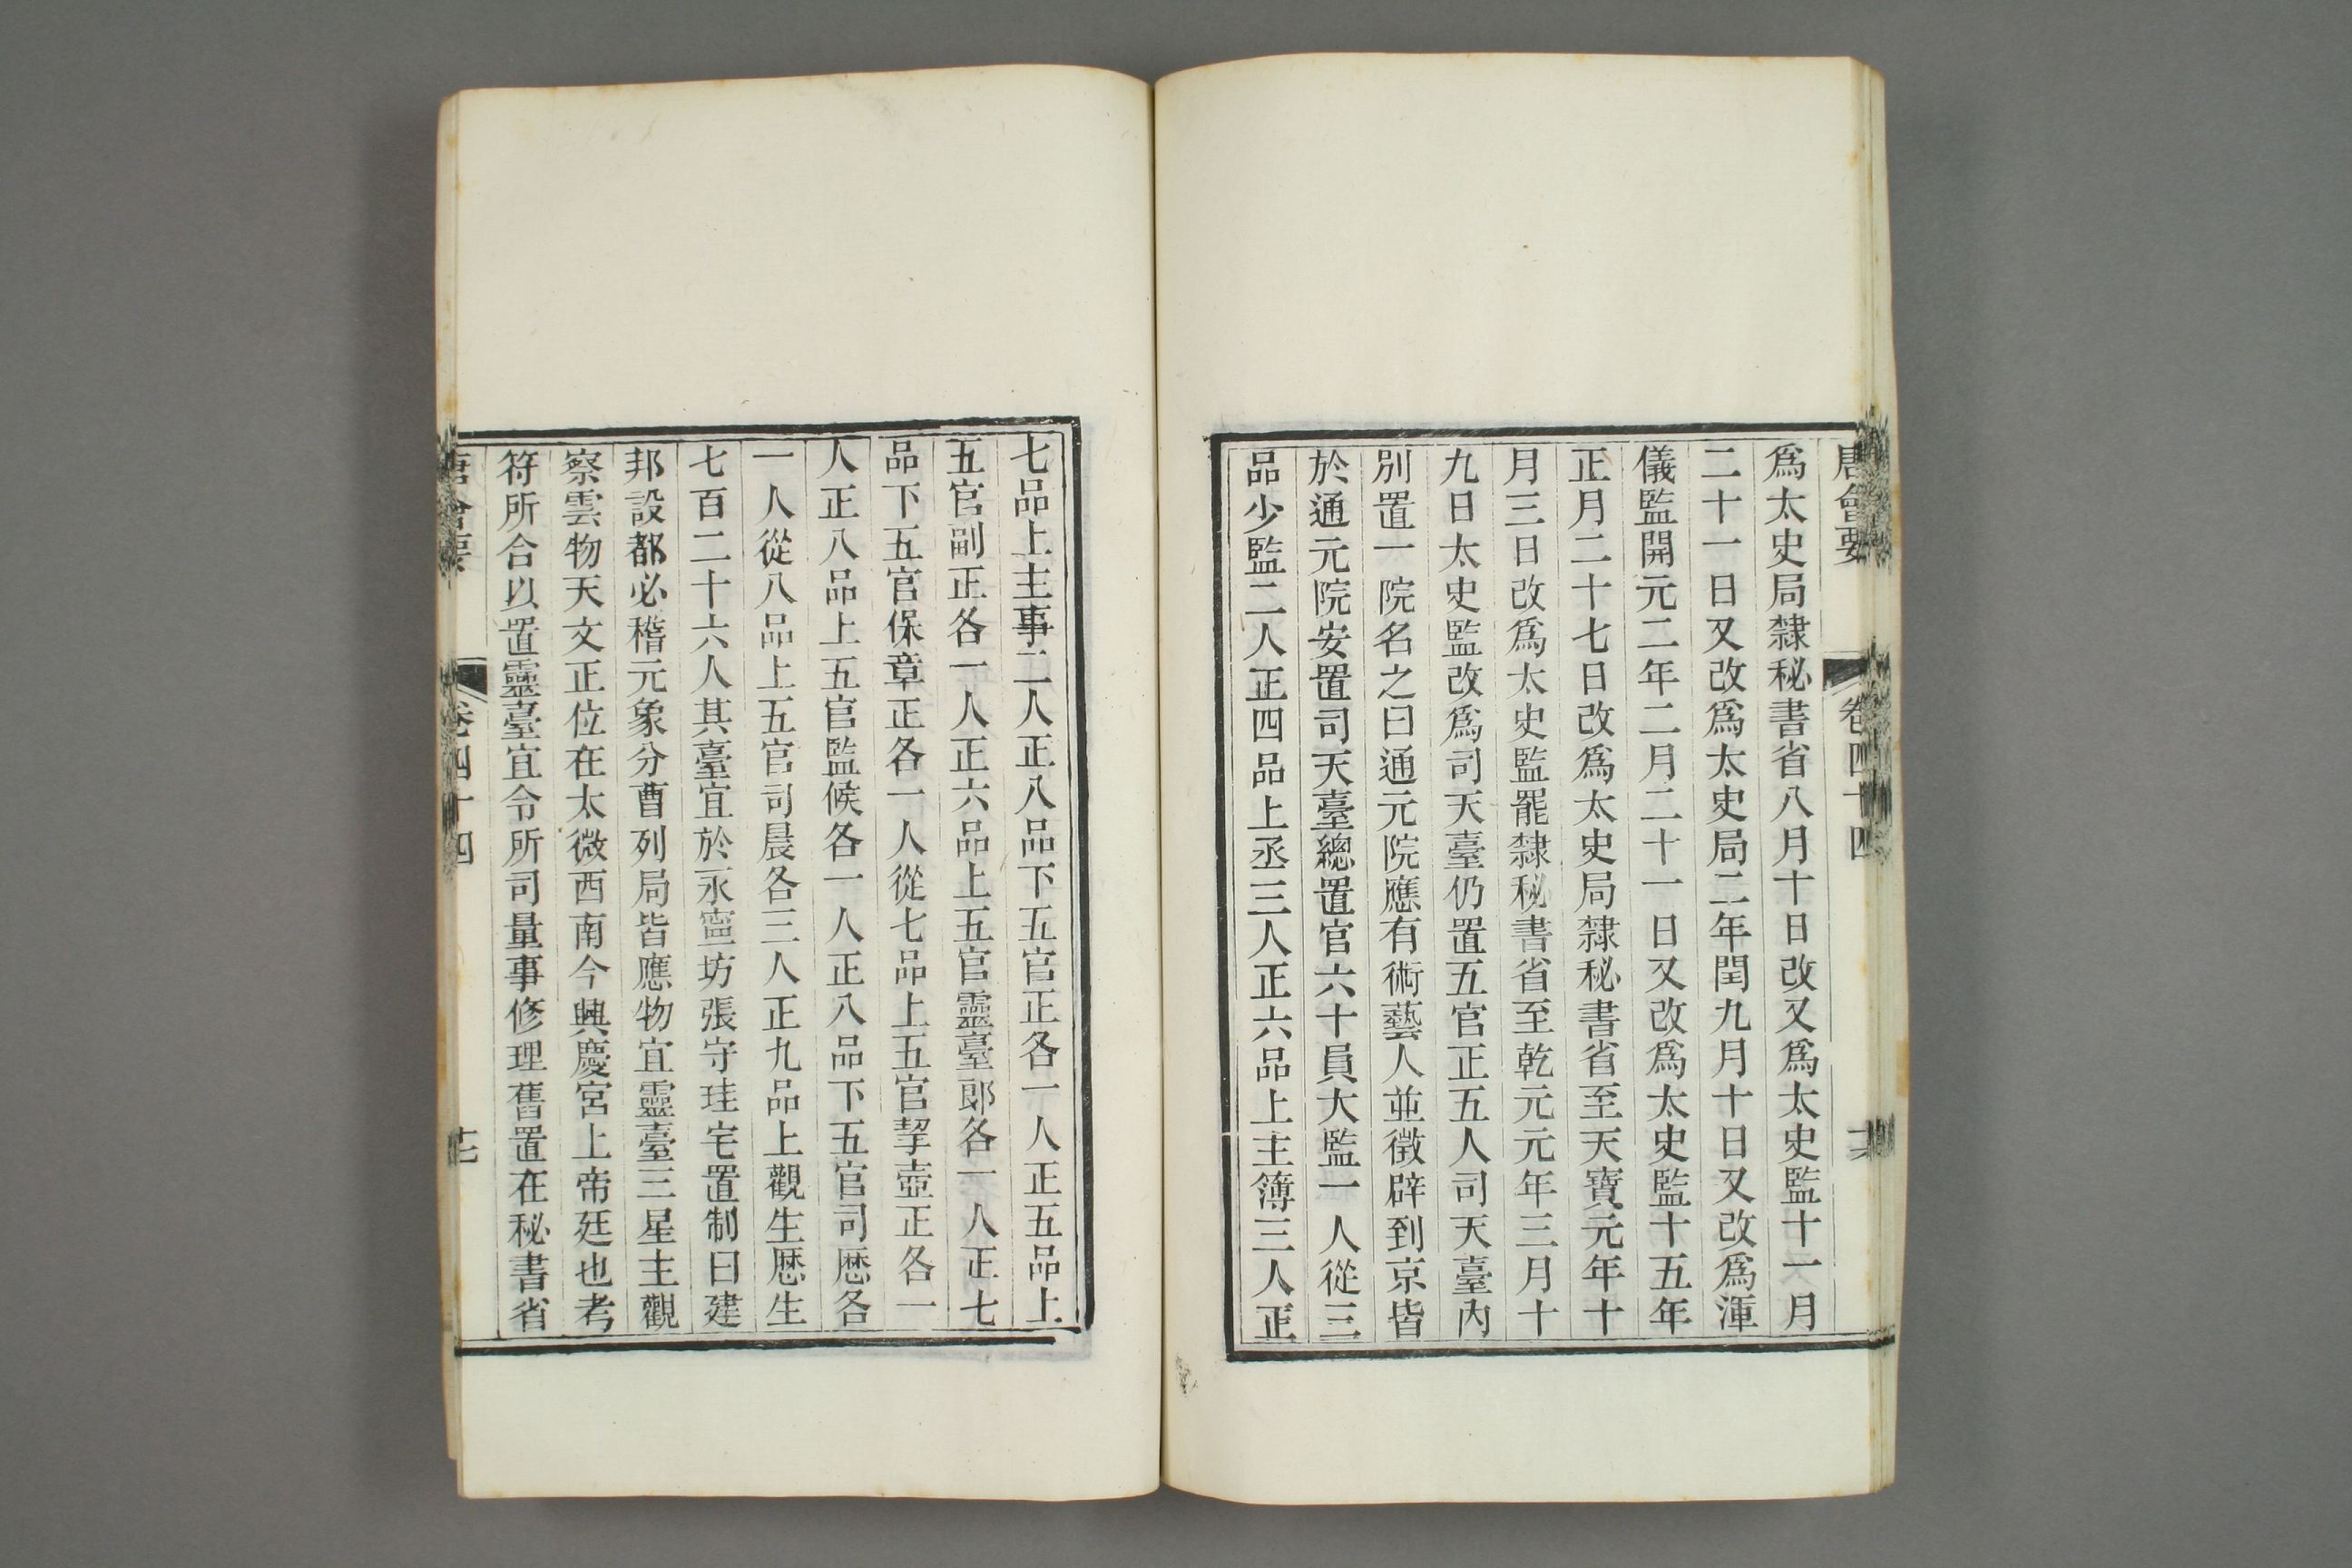 唐會要 卷四十四 十六
爲太史局隸秘書省八月十日改又爲太史監十一月
二十一日又改爲太史局二年閏九月十日又改爲渾
儀監開元二年二月二十一日又改爲太史監十五年
正月二十七日改爲太史局隸秘書省至天寶元年十
月三日改爲太史監罷隸秘書省至乾元元年三月十
九日太史監改爲司天臺仍置五官正五人司天臺內
別置一院名之曰通元院應有術藝人並徵辟到京皆
於通元院安置司天臺總置官六十員大監一人從三
品少監二人正四品上丞三人正六品上主簿三人正
七品上主事二人正八品下五官正各一人正五品上
五官副正各一人正六品上五官靈臺郎各一人正七
品下五官保章正各一人從七品上五官挈壺正各一
人正八品上五官監候各一人正八品下五官司歷各
一人從八品上五官司晨各三人正九品上觀生歷生
七百二十六人其臺宜於永寧坊張守珪宅置制曰建
邦設都必稽元象分曹列局皆應物宜靈臺三星主觀
察雲物天文正位在太微西南今興慶宮上帝廷也考
符所合以置靈臺宜令所司量事修理舊置在秘書省
唐會要 卷四十四 十七